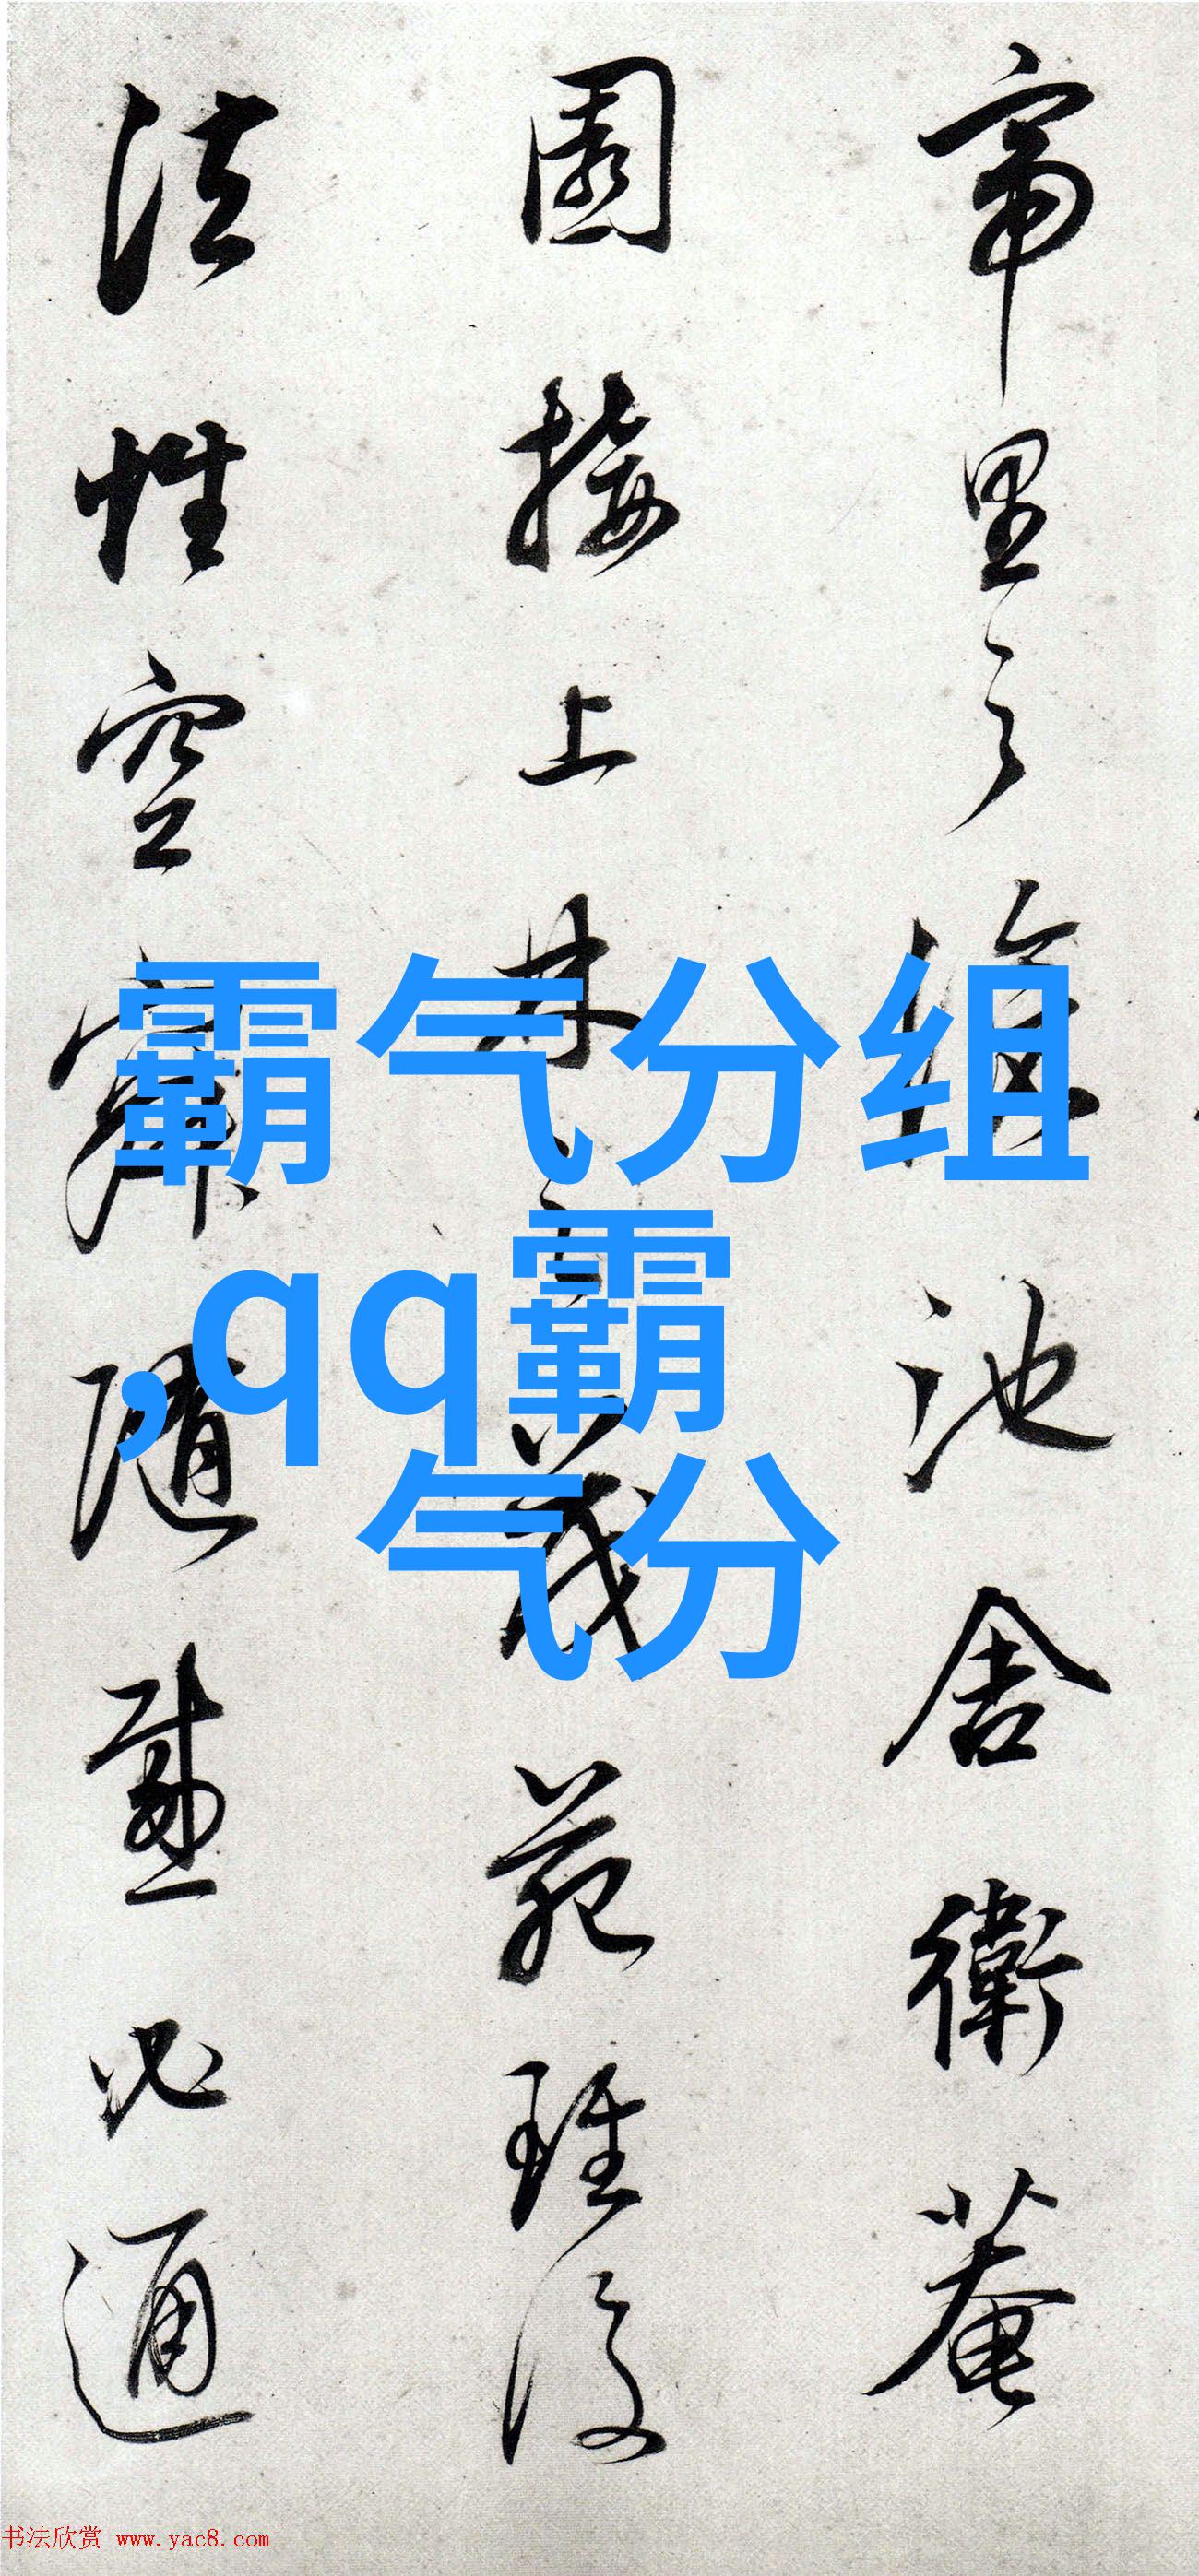 帝里之
池舍衛菴
園接上林之茂苑雖復
法性空寂隨感必通
霸气分组
,qq霸
气分
书法欣赏 www.yac8.com